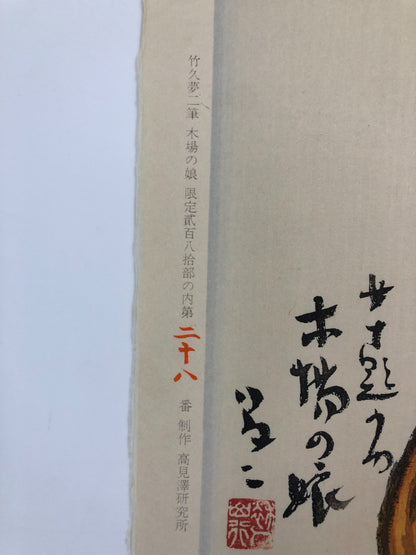 竹久夢二筆 木場の娘 限定貳百八拾部の内第二十八番 制作 高見澤研究所
女十題の内
木場の娘
夢二